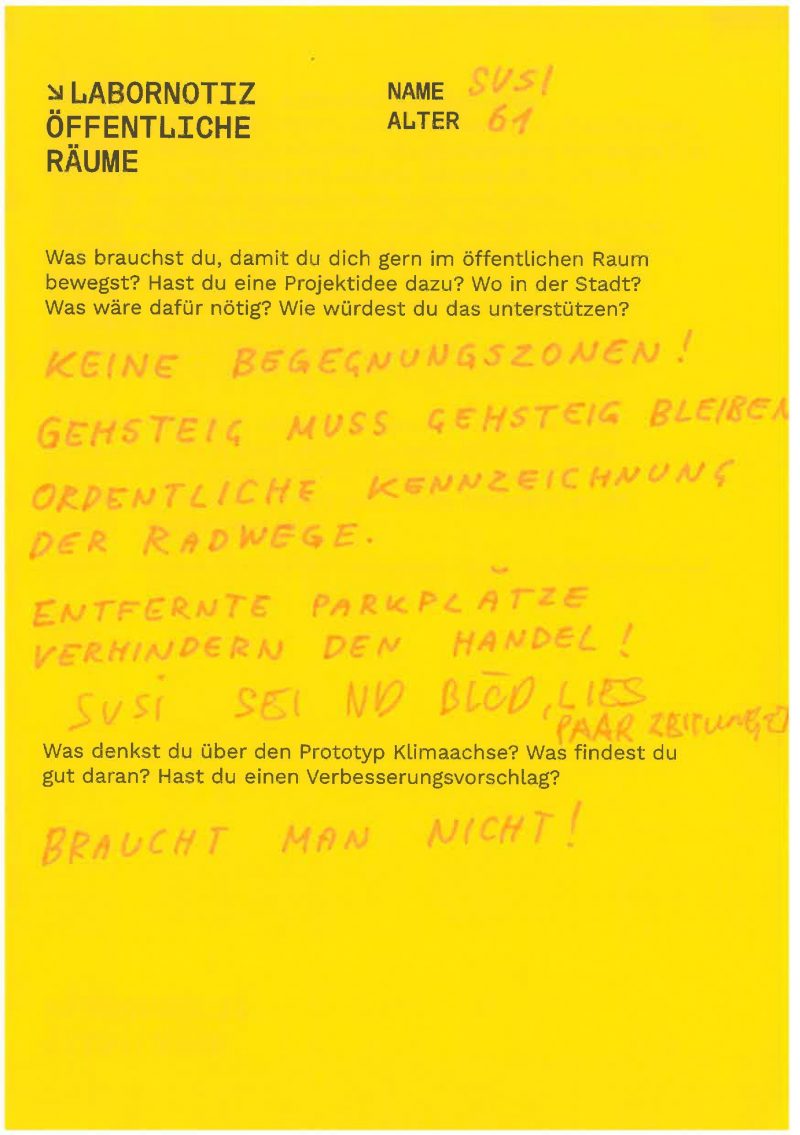 ↘ LABORNOTIZ
ÖFFENTLICHE
RÄUME
NAME SUSI
ALTER 61
Was brauchst du, damit du dich gern im öffentlichen Raum
bewegst? Hast du eine Projektidee dazu? Wo in der Stadt?
Was wäre dafür nötig? Wie würdest du das unterstützen?
KEINE BEGEGNUNGSZONEN!
GEHSTEIG MUSS GEHSTEIG BLEIBEN
ORDENTLICHE KENNZEICHNUNG
DER RADWEGE.
ENTFERNTE PARKPLÄTZE
VERHINDERN DEN HANDEL!
SUSI SEI ND BLÖD, LIES
PAAR ZEITUNGEN
Was denkst du über den Prototyp Klimaachse? Was findest du
gut daran? Hast du einen Verbesserungsvorschlag?
BRAUCHT MAN NICHT!